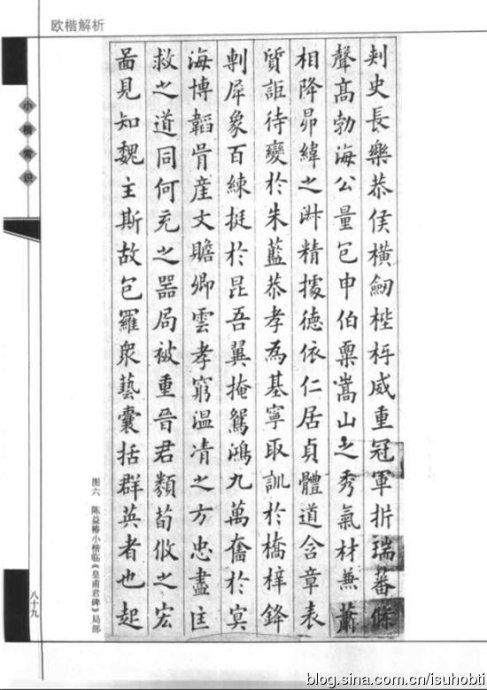 欧楷解析
小楷常识
刾史長樂恭侯橫劒梐枑威重冠軍析瑞蕃條
聲高勃海公量包申伯稟嵩山之秀氣材兼蕭
相降昴緯之淋精據德依仁居貞體道含章表
質詎待變於朱藍恭孝為基寧取訓於橋梓鋒
剸犀象百練挺於昆吾翼掩鴛鴻九萬奮於冥
海博韜骨產文贍卿雲孝窮溫凊之方忠盡匡
救之道同何充之器局被重晉君類荀攸之宏
啚見知魏主斯故包羅衆藝囊括群英者也起
图六 陈益椿小楷临《皇甫君碑》局部
八十九
blog.sina.com.cn/isuhobti